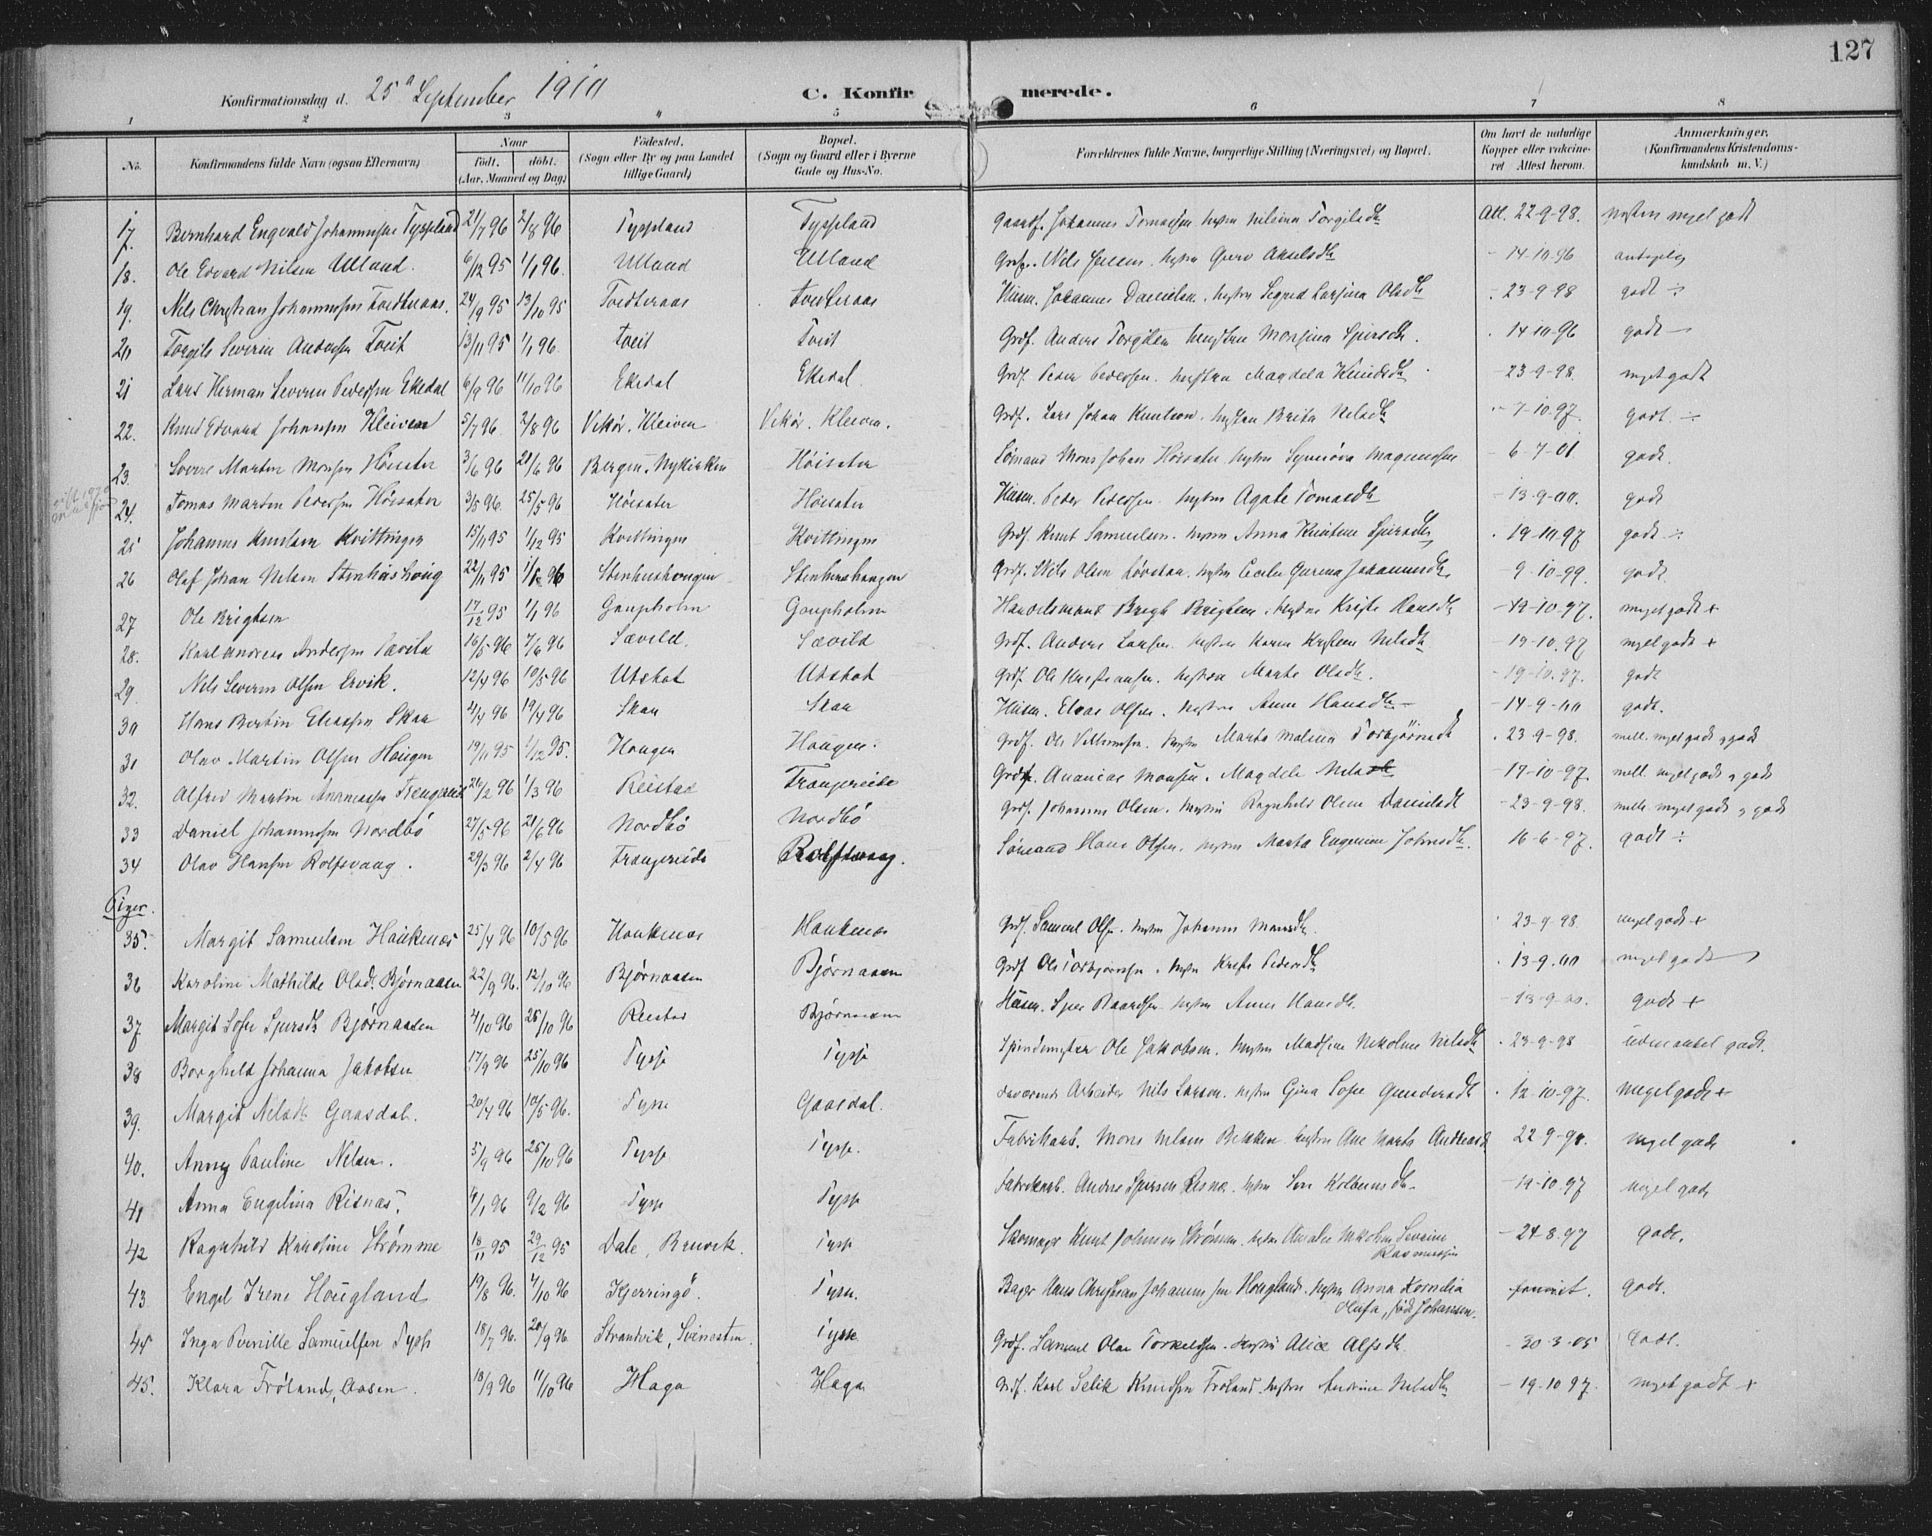 127
Konfirmationsdag d. 25de September 1910 C. Konfirmerede.
1 2 3 4 5 6 7 8
No. Konfirmandens fulde Navn (ogsaa Efternavn) Naar født, døbt. (Aar, Maaned og Dag) Fødested. (Sogn eller By og paa Landet tillige Gaard) Bopæl. (Sogn og Gaard eller i Byerne Gade og Hus-No. Forældrenes fulde Navne, borgerlige Stilling (Næringsvei) og Bopæl. Om havt de naturlige Kopper eller vakcineret Attest herom. Anmærkninger. (Konfirmandens Kristendomskundskab m. V.)
17. Bernhard Engvald Johannessen Tyssland 21/7 96 2/8 96 Tyssland Tyssland Johannes Tomassen Hustru Nilsina Torgilsdtr Att. 22-9-98. næsten meget godt
18. Ole Edvard Nilsen Ulland. 6/12 95 1/1 96. Ulland Ulland Nils Hustru Akselsdtr - 14-10-96 antagelig
19. Nils Christian Johannessen Tvedteraas. 24/9 95 13/10 95 Tvedteraas Tvedteraas Husm. Johannes Danielsen. Hustru Sigrid Larsina Olsdtr - 23-9-98 godt ÷
20 Torgils Severin Andersen Tveit 13/11 95 1/1 96. Tveit Tveit Grdf. Anders Torgilsen Hustru Monsina Sjursdtr. - 14-10-96 godt -
21 Lars Herman Severin Pedersen Ekedal 6/9 96 11/10 96 Ekedal Ekedal Grdf. Peder Pedersen. Hustru Magdela Knudsdtr - 23-9-98. meget godt
22. Knud Edvard Johansen Kleiven 5/7 96. 2/8 96 Vikør. Kleiven Vikør. Kleiven. Grdf. Lars Johan Knutson. Hustru Brita Nilsdtr - 7-10-97. godt. ÷
23. Sverre Martin Monsen Høisæter 3/6 96 21/6 96 Bergen, Nykirken Høisæter Sømand Mons Johan Høisæter Hustru Synnøva Magnussen - 6-7-01 godt.
24. Tomas Martin Pedersen Høisæter 3/5 96. 25/5 96 Høisæter Høisæter Husm. Peder Pedersen. Hustru Agate Tomasdtr - 13-9-00. godt
25 Johannes Knutsen Kvittingen 15/11 95 1/12 95 Kvittingen Kvittingen Grdf. Knut Samuelsen. Hustru Anna Sjursdtr - 19-10-97 godt ÷
26 Olaf Johan Nilsen Stenhushoug 22/11 95 Stenhushougen Stenhushaugen Grdf. Nils Olsen Hustru Cecilie Gurina Johannesdtr - 9-10-99. godt.
27 Ole Brigtsen 17/12 95 1/1 96 Gaupholm Gaupholm Handelsmand Brigt Brigtsen. Hustru Kristi Hansdtr - 19-10-97. meget godt +
28. Karl Andreas Andersen Sævild 16/5 96 7/6 96 Sævild. Sævild Grdf. Anders Larsen. Hustru Karen Kristine Nilsdtr - 19-10-97 meget godt +
29 Nils Severin Olsen Ervik. 12/4 96 10/5 96 Utskot Utskot Grdf. Ole Kristiansen. Hustru Marta Olsdtr. - 19-10-97. godt
30 Hans Bertin Eliassen Skaar 4/4 96 19/4 96 Skaar Skaar Husm. Elias Olsen. Hustru Anna Hansdtr - 14-9-00 godt.
31 Olav Martin Olsen Haugen 19/11 95 1/12 95. Haugen Haugen. Grdf. Ole Hustru Marta Malina Torbjørnsdtr - 23-9-98. mell. meget godt og godt
32. Alfred Martin Ananiassen 26/2 96 1/3 96 Reistad Trangereide Ananias Monsen. Magdele Nilsdtr - 19-10-97. mell. meget godt og godt
33 Daniel Johannessen Nordbø 27/5 96 21/6 96 Nordbø Nordbø Grdf. Johannes Olsen. Hustru Ragnhild Oline Danielsdtr - 23-9-98. mell. meget godt og godt
34 Olav Hansen Rolfsvaag. 29/3 96 2/4 96 Trangereide Rolfsvaag. Sømand Hans Olsen. Hustru Marta Eugenine Johnsdtr. 16-6-97. godt ÷
Piger.
35. Margit Samuelsen Haukenæs 25/4 96 10/5 96 Haukenæs Haukenæs Grdf. Samuel Olsen. Hustru Johanna Monsdtr. - 23-9-98. meget godt +
36 Karoline Mathilde Olsdtr. Bjørnaasen 22/9 96. 12/10 96 Bjørnaasen Bjørnaasen Grdf Ole Torbjørnsen. Hustru Kristi Pedersdtr - 13-9-00 meget godt
37 Margit Sofie Sjursdtr Bjørnaasen 4/10 96 26/10 96 Reistad Bjørnaasen Husm. Sjur Baardsen Hustru Anna Hansdtr. - 13-9-00. godt +
38 Borghild Johanna Jakobsen 17/9 96 25/10 96 Tysse Tysse Spindemester Ole Jakobsen. Hustru Madsine Nikoline Nilsdtr - 23-9-98 udmærket godt.
39. Margit Nilsdtr Gaasdal. 20/4 96 10/5 96. Tysse Gaasdal. Arbeider Nils Larsen. Hustru Gina Sofie Gundersdtr - 12-10-97. meget godt +
40. Anny Pauline Nilsen. 5/9 96 25/10 96 Tysse Tysse. Fabrikarb. Mons Nilsen Bekken. Hustru Ane Marta Andersdtr 22-9-98. meget godt
41 Anna Engelina Risnæs. 6/1 96 9/2 96 Tysse Tysse Fabrikarb. Anders Sjursen Risnæs. Hustru Kolbensdtr. - 19-10-97 meget godt
42 Ragnhild Karoline Strømme 18/11 95 29/12 95 Dale, Bruvik. Tysse Skomager Knut Johnsen Strømme. Hustru Severine Rasmussen - 24-8-97 godt.
43 Engel Irene Hougland 19/8 96. 4/10 96 Kjerringø. Tysse. Bager Hans Christian Johannessen Hougland. Hustru Anna Kornelia Olufa, født Johansen. godt.
45 Inga Pernille Samuelsen Tysse 18/7 96. 20/9 96 Strandvik, Tysse Grdf. Samuel Olai Torkeldsen. Hustru Alice Alfsdtr. - 30-3-05 godt.
45. Klara Frøland, Aasen. 18/9 96 11/10 96 Haga Haga Grdf. Karl Selik Knudsen Frøland. Hustru Andrine Nilsdtr - 19-10-97. meget godt +